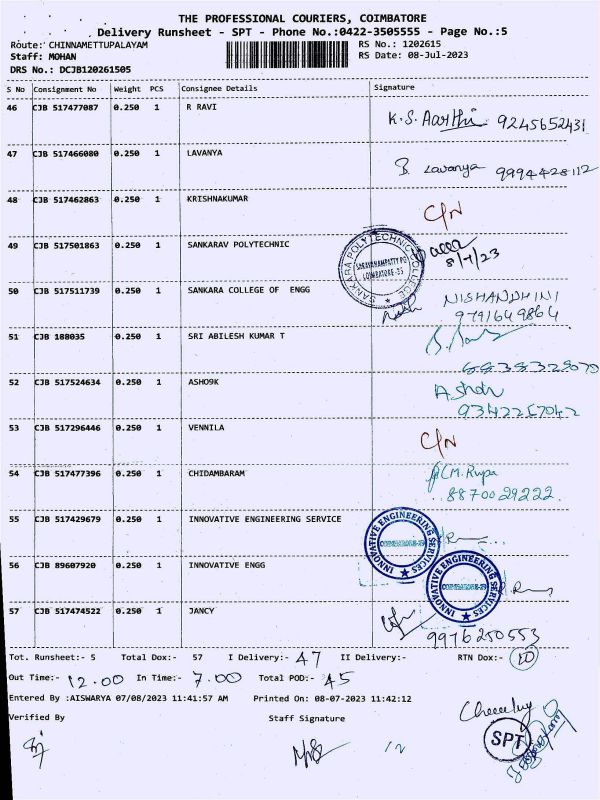 THE PROFESSIONAL COURIERS, COIMBATORE
Delivery Runsheet - SPT - Phone No.:0422-3505555 - Page No.:5
Route: CHINNAMETTUPALAYAM RS No.: 1202615
Staff: MOHAN RS Date: 08-Jul-2023
DRS No.: DCJB120261505
S No Consignment No Weight PCS Consignee Details Signature
46 CJB 517477087 0.250 1 R RAVI K.S. Aarthi 9245652431
47 CJB 517466080 0.250 1 LAVANYA B. Lavanya 9994428112
48 CJB 517462863 0.250 1 KRISHNAKUMAR C/N
49 CJB 517501863 0.250 1 SANKARAV POLYTECHNIC 8/7/23
SANKARA POLYTECHNIC COLLEGE
SARAVANAMPATTY PO
COIMBATORE-35
50 CJB 517511739 0.250 1 SANKARA COLLEGE OF ENGG NISHANDHINI
9791649864
51 CJB 188035 0.250 1 SRI ABILESH KUMAR T
52 CJB 517524634 0.250 1 ASHO9K Ashok
53 CJB 517296446 0.250 1 VENNILA C/N
54 CJB 517477396 0.250 1 CHIDAMBARAM C.M. Rupa
8870029222
55 CJB 517429679 0.250 1 INNOVATIVE ENGINEERING SERVICE
INNOVATIVE ENGINEERING SERVICES
56 CJB 89607920 0.250 1 INNOVATIVE ENGG
INNOVATIVE ENGINEERING SERVICES
57 CJB 517474522 0.250 1 JANCY
9976250553
Tot. Runsheet:- 5 Total Dox:- 57 I Delivery:- 47 II Delivery:- RTN Dox:- 10
Out Time:- 12.00 In Time:- 7.00 Total POD:- 45
Entered By :AISWARYA 07/08/2023 11:41:57 AM Printed On: 08-07-2023 11:42:12
Verified By Staff Signature
SPT